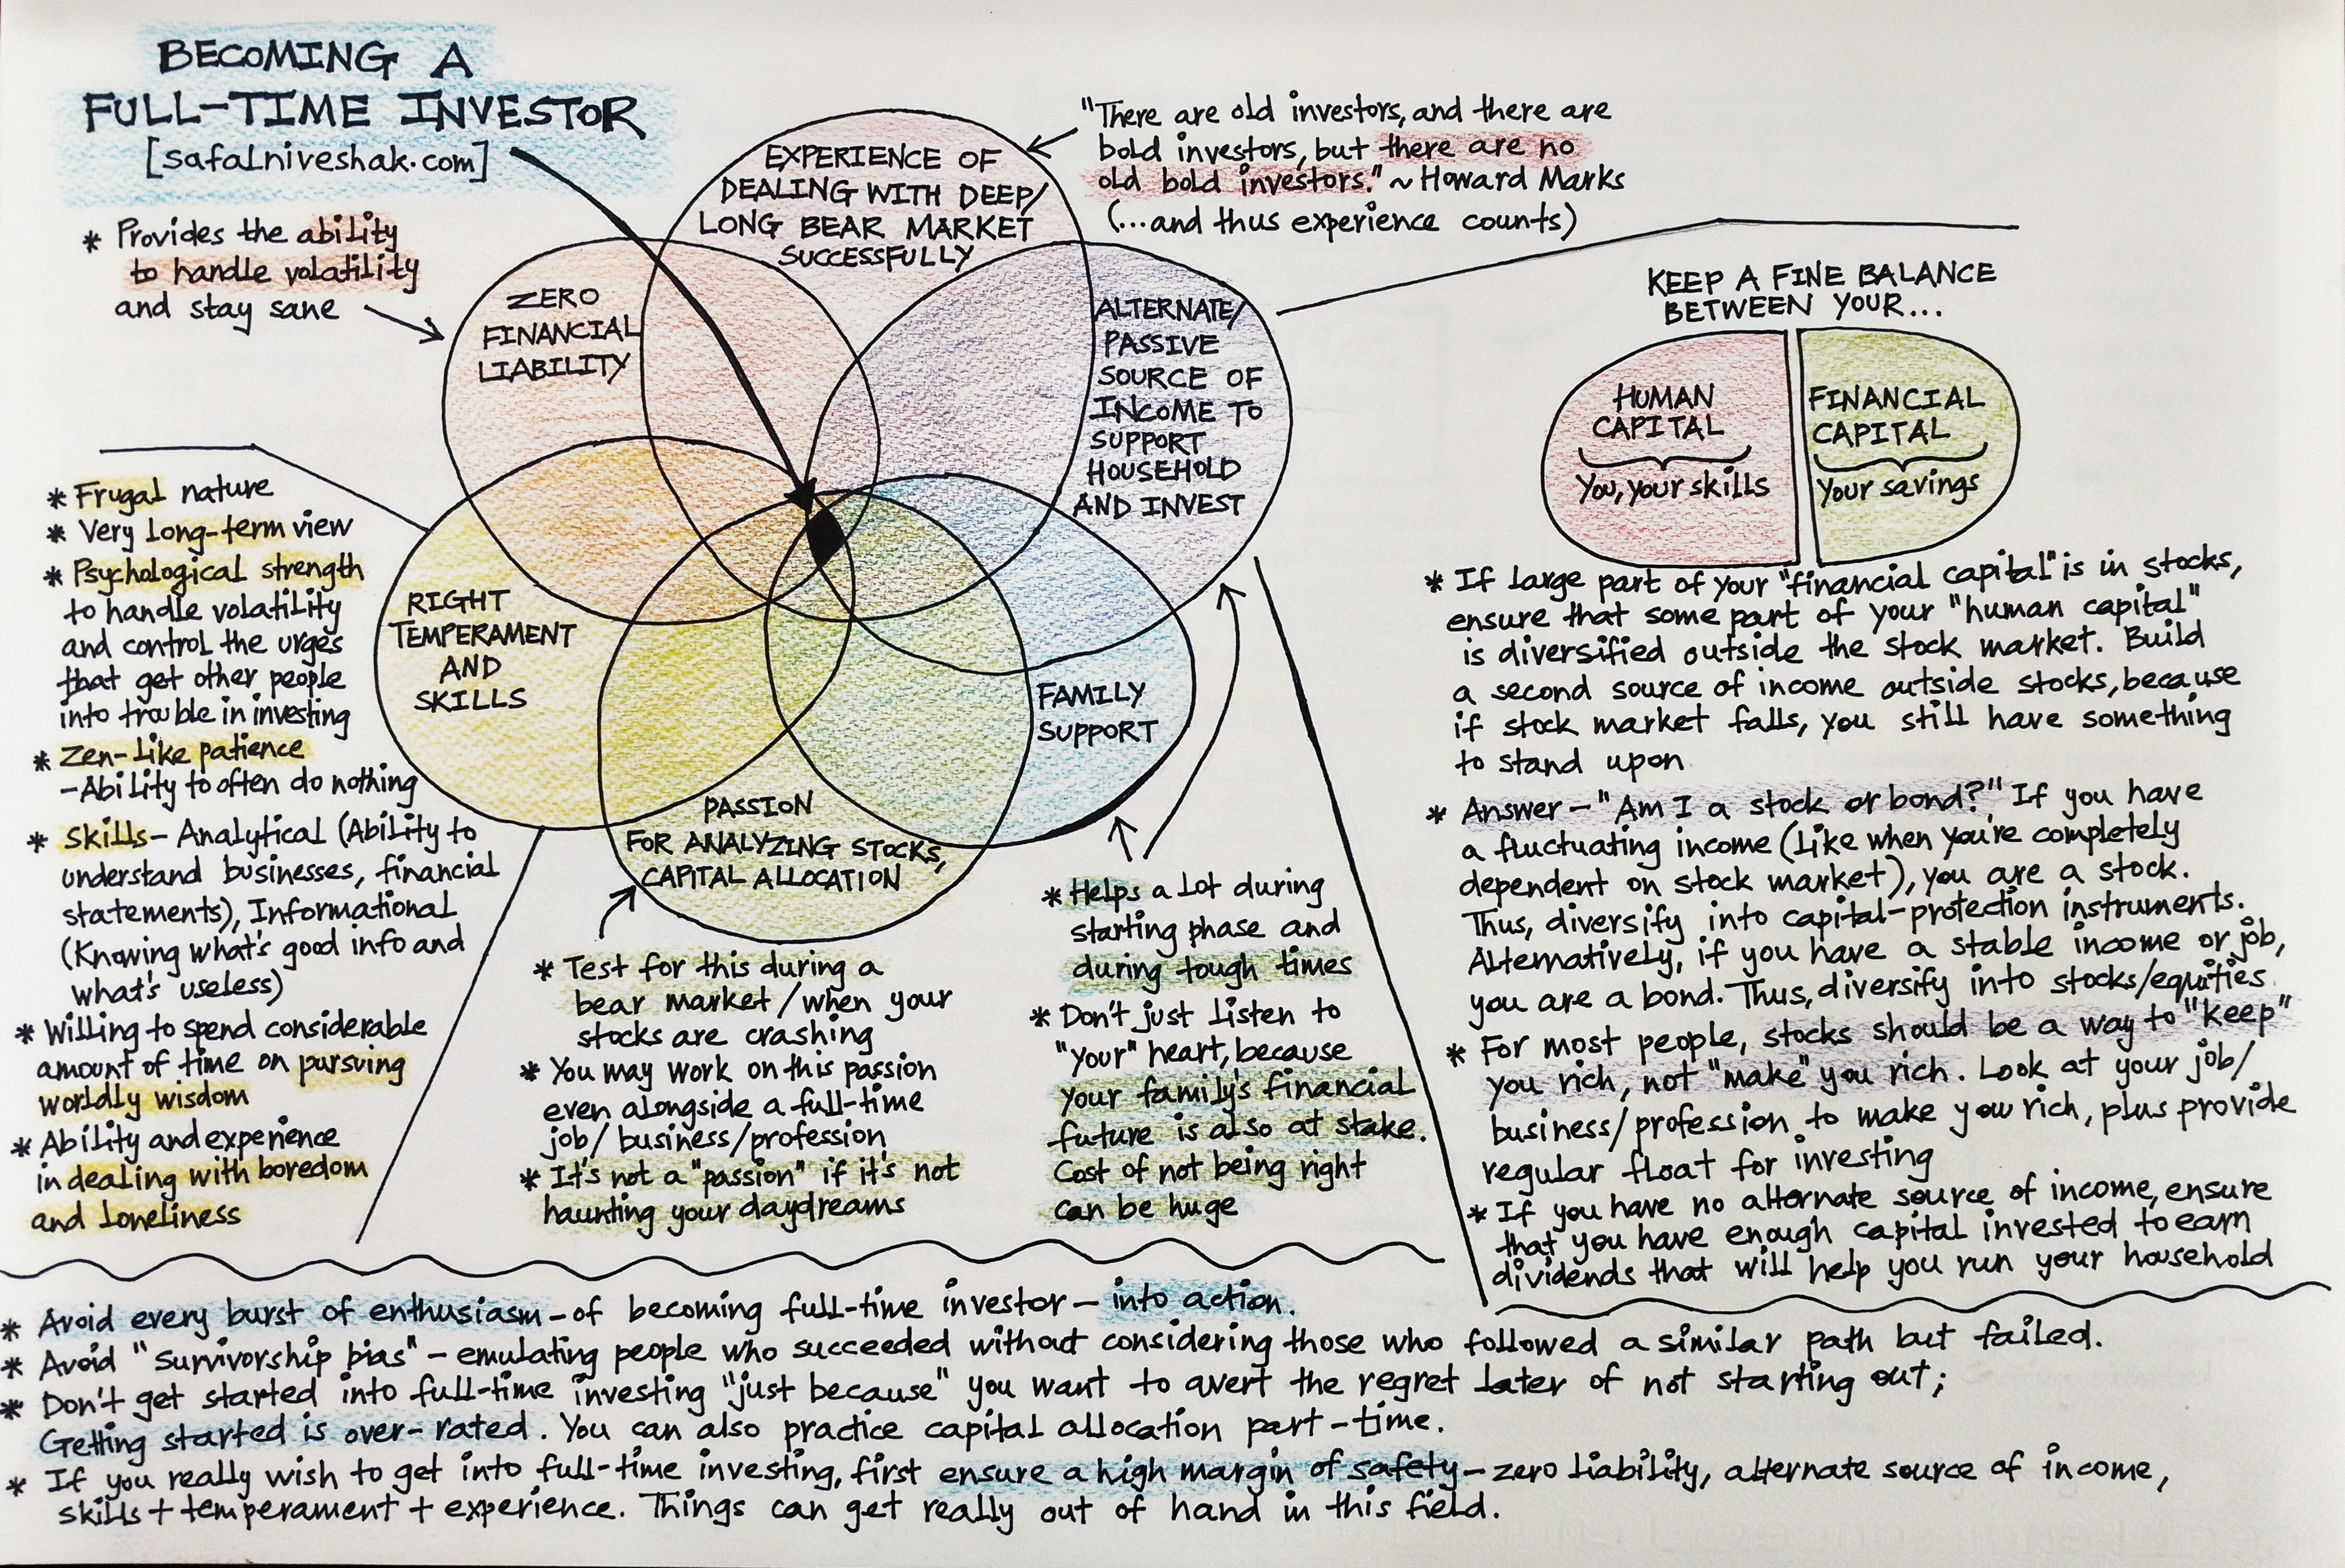 BECOMING A
FULL-TIME INVESTOR
[safalniveshak.com]
* Provides the ability
to handle volatility
and stay sane
EXPERIENCE OF
DEALING WITH DEEP/
LONG BEAR MARKET
SUCCESSFULLY
"There are old investors, and there are
bold investors, but there are no
old bold investors." ~ Howard Marks
(...and thus experience counts)
ZERO
FINANCIAL
LIABILITY
ALTERNATE/
PASSIVE
SOURCE OF
INCOME TO
SUPPORT
HOUSEHOLD
AND INVEST
RIGHT
TEMPERAMENT
AND
SKILLS
FAMILY
SUPPORT
PASSION
FOR ANALYZING STOCKS,
CAPITAL ALLOCATION
* Frugal nature
* Very long-term view
* Psychological strength
to handle volatility
and control the urges
that get other people
into trouble in investing
* Zen-like patience
- Ability to often do nothing
* Skills - Analytical (Ability to
understand businesses, financial
statements), Informational
(Knowing what's good info and
what's useless)
* Willing to spend considerable
amount of time on pursuing
worldly wisdom
* Ability and experience
in dealing with boredom
and loneliness
* Test for this during a
bear market/when your
stocks are crashing
* You may work on this passion
even alongside a full-time
job/business/profession
* It's not a "passion" if it's not
haunting your daydreams
* Helps a lot during
starting phase and
during tough times
* Don't just listen to
"your" heart, because
your family's financial
future is also at stake.
Cost of not being right
can be huge
KEEP A FINE BALANCE
BETWEEN YOUR...
HUMAN
CAPITAL
You, your skills
FINANCIAL
CAPITAL
Your savings
* If large part of your "financial capital" is in stocks,
ensure that some part of your "human capital"
is diversified outside the stock market. Build
a second source of income outside stocks, because
if stock market falls, you still have something
to stand upon
* Answer - "Am I a stock or bond?" If you have
a fluctuating income (like when you're completely
dependent on stock market), you are a stock.
Thus, diversify into capital-protection instruments.
Alternatively, if you have a stable income or job,
you are a bond. Thus, diversify into stocks/equities
* For most people, stocks should be a way to "keep"
you rich, not "make" you rich. Look at your job/
business/profession to make you rich, plus provide
regular float for investing
* If you have no alternate source of income, ensure
that you have enough capital invested to earn
dividends that will help you run your household
* Avoid every burst of enthusiasm - of becoming full-time investor - into action.
* Avoid "survivorship bias" - emulating people who succeeded without considering those who followed a similar path but failed.
* Don't get started into full-time investing "just because" you want to avert the regret later of not starting out;
Getting started is over-rated. You can also practice capital allocation part-time.
* If you really wish to get into full-time investing, first ensure a high margin of safety - zero liability, alternate source of income,
skills + temperament + experience. Things can get really out of hand in this field.